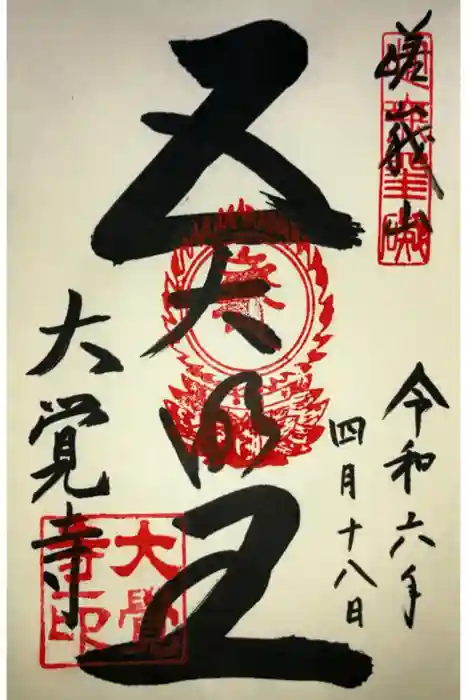 嵯峨山
令和六年
四月十八日
五大明王
大覚寺
大覺
寺印